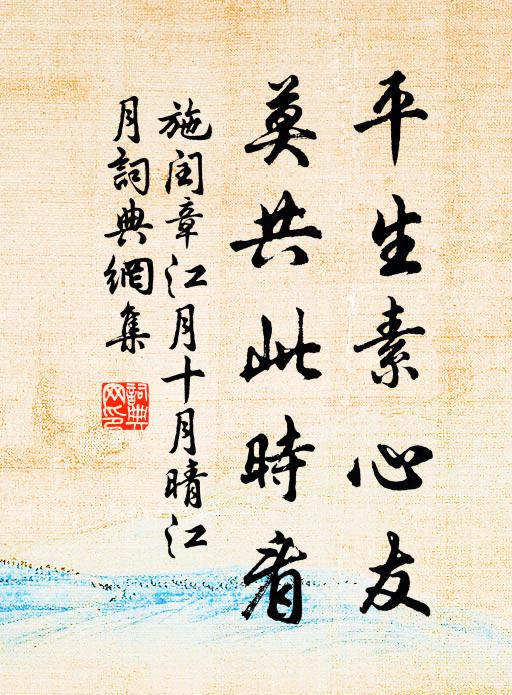 平生素心友
莫共此時看
施闰章江月十月晴江
月詞典網集
詞典
网印